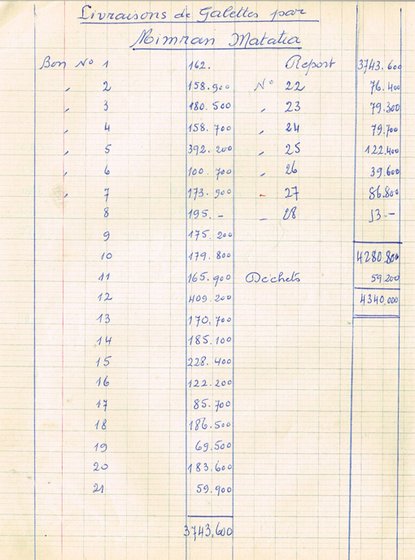 Livraisons de Galettes par
Mimran Matatia
Bon N° 1 162. Report 3743.600
" 2 158.900 N° 22 76.400
" 3 180.500 " 23 79.300
" 4 158.700 " 24 79.700
" 5 392.200 " 25 122.400
" 6 100.700 " 26 39.600
" 7 173.900 " 27 86.800
8 195.- " 28 53.-
9 175.200
10 179.800 4280.800
11 165.900 Déchets 59.200
12 409.200 4340.000
13 170.700
14 185.100
15 228.400
16 122.200
17 85.700
18 186.500
19 69.500
20 183.600
21 59.900
3743,600